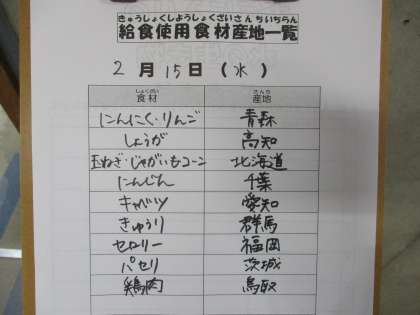 きゅうしょくしようしょくざいさんちいちらん
給食使用食材産地一覧
2月15日(水)
しょくざい さんち
食材 産地
にんにく・りんご 青森
しょうが 高知
玉ねぎ・じゃがいもコーン 北海道
にんじん 千葉
キャベツ 愛知
きゅうり 群馬
セロリー 福岡
パセリ 茨城
鶏肉 鳥取